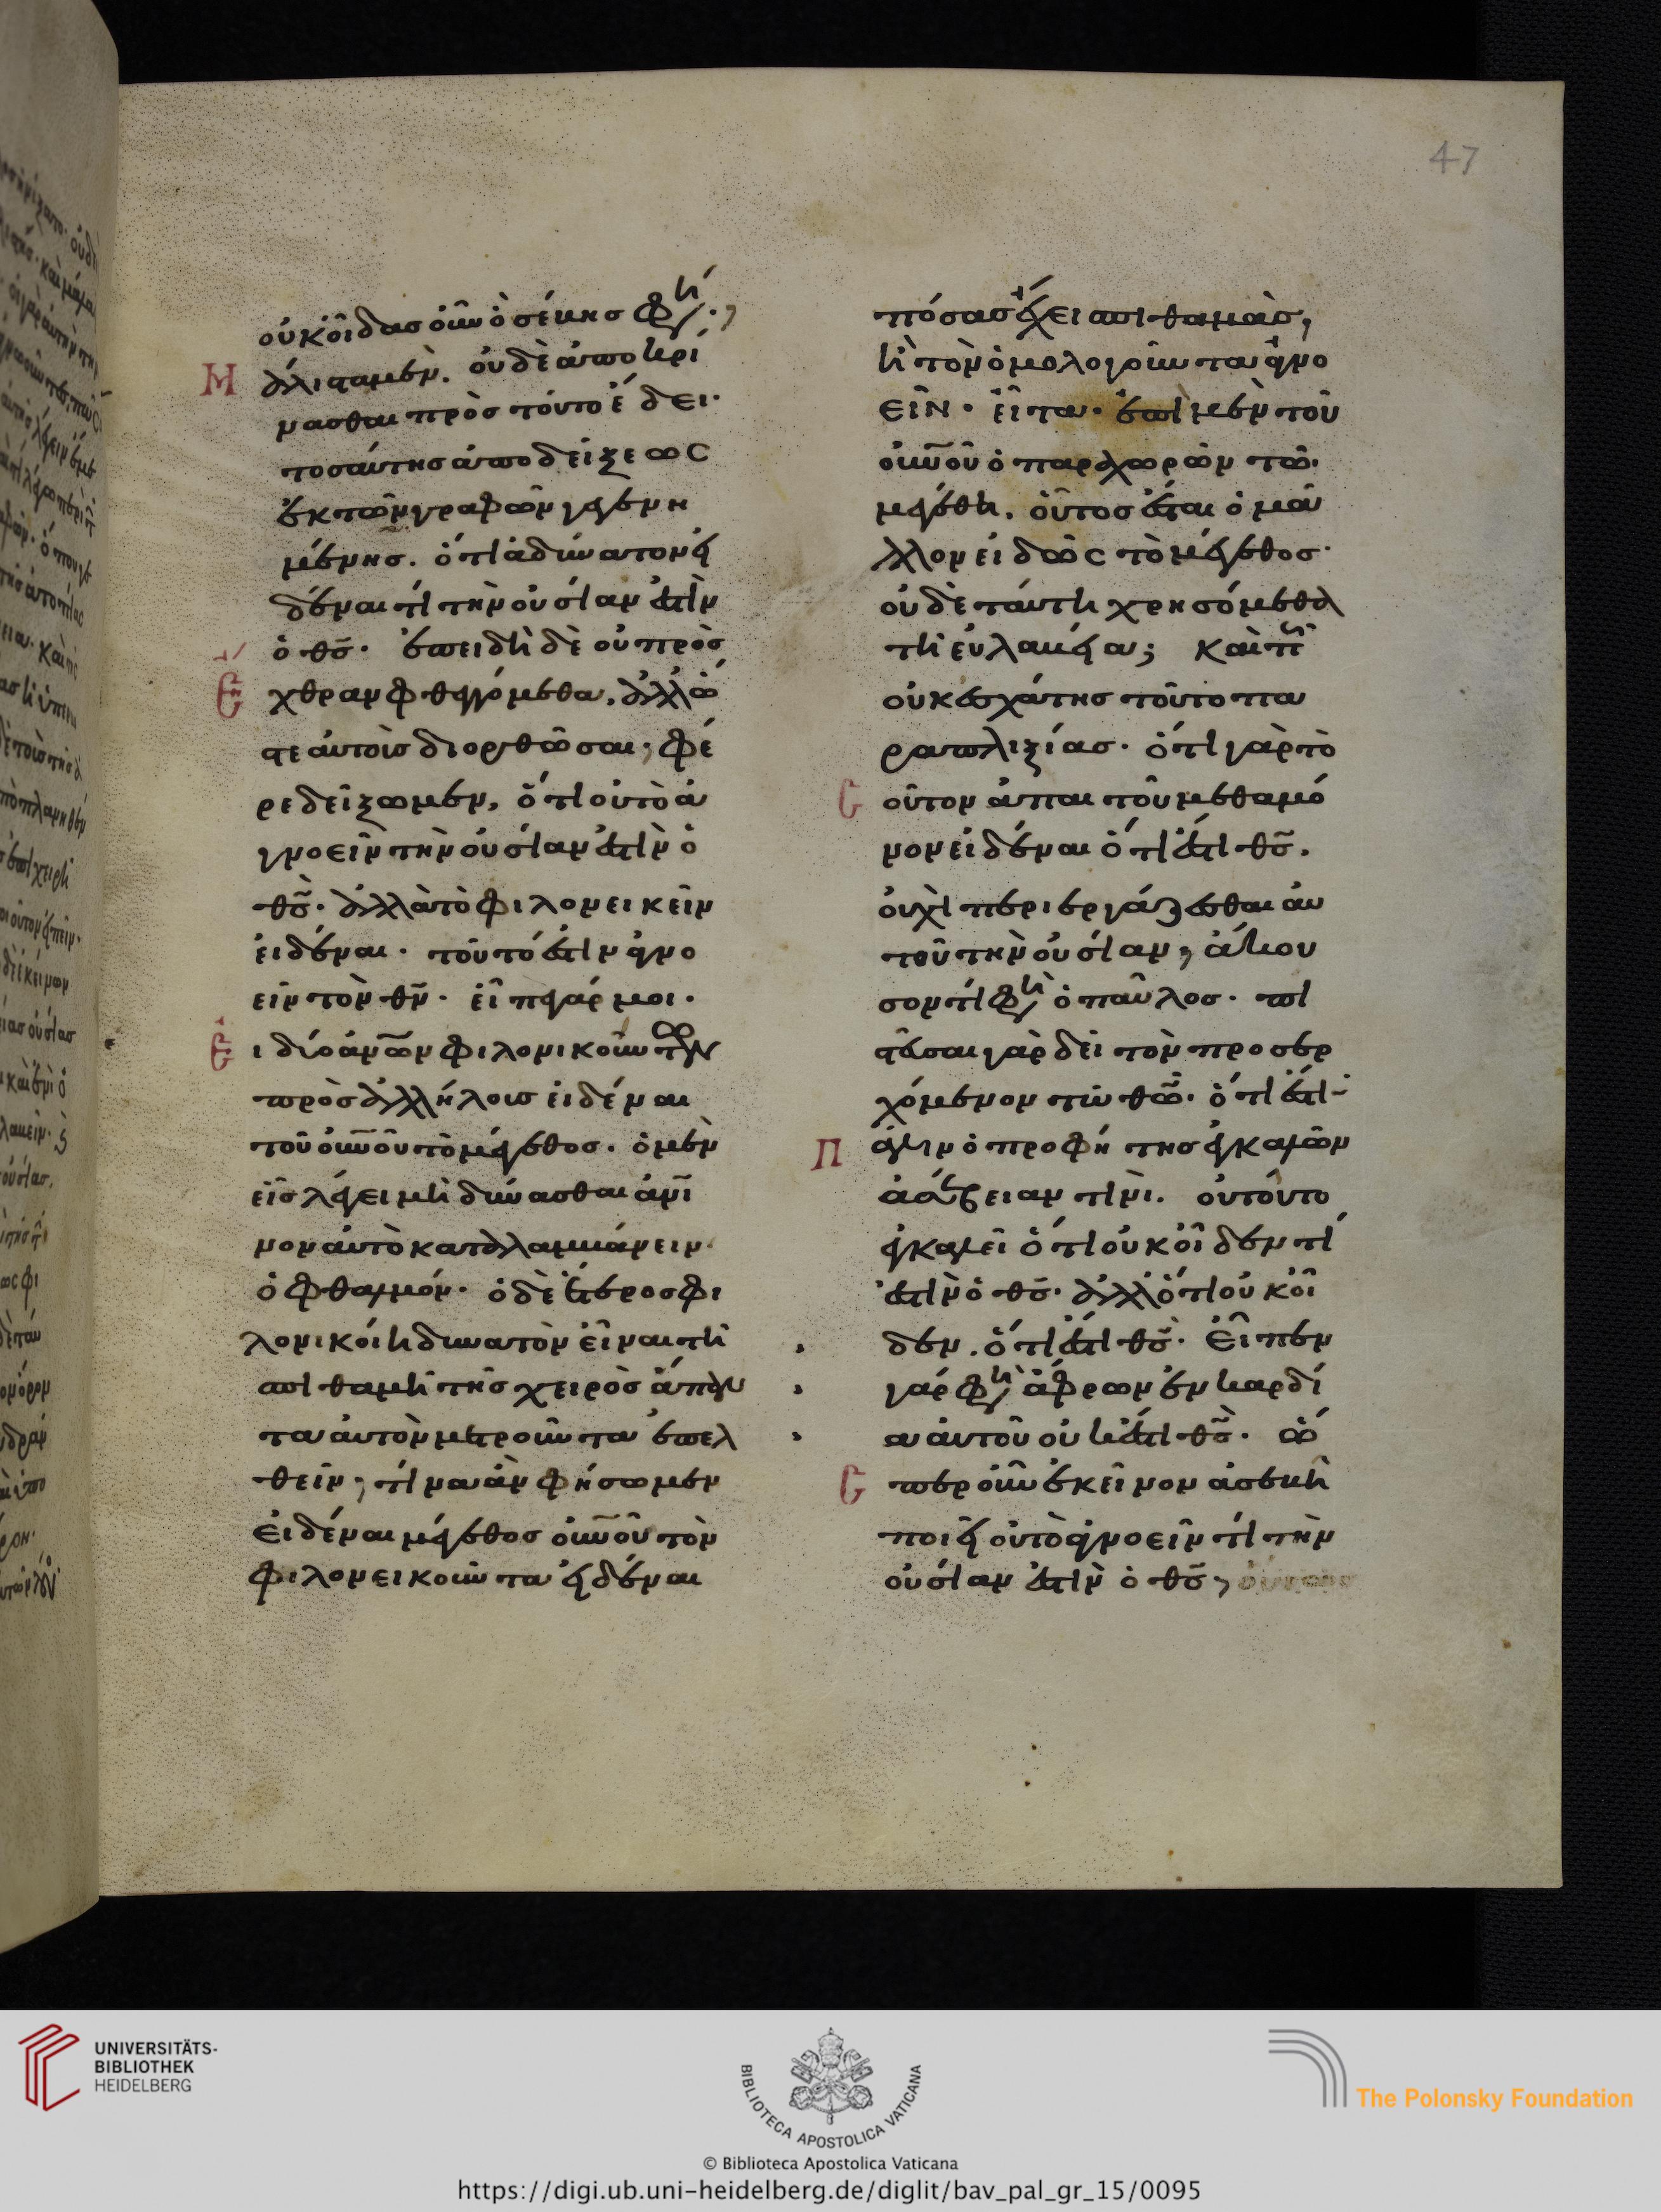 47
οὐκ οἶδας οὖν ὃ σέβῃς φη´·,
Μάλιστα μὲν. οὐδὲ ἀποκρί
νασθαι πρὸς τοῦτο ἔδει·
τοσαύτης ἀποδείξεως
ἐκ τῶν γραφῶν γεγενη
μένης. ὅτι ἀδύνατον εἰ
δέναι τί τὴν οὐσίαν ἐστὶν
ὁ θς̄· ἐπειδὴ δὲ οὐ πρὸς
Ἐχθραν φθεγγόμεθα, ἀλλ' ὥ
στε αὐτοὺς διορθῶσαι, φέ
ρε δείξωμεν, ὅτι οὐ τὸ ἀ
γνοεῖν τὴν οὐσίαν ἐστὶν ὁ
θς̄· ἀλλὰ τὸ φιλονεικεῖν
εἰδέναι· τοῦτό ἐστιν ἀγνο
εῖν τὸν θν̄· εἰπὲ γάρ μοι·
Εἰ δύο ἀνῶν φιλονικούντων
πρὸς ἀλλήλους εἰδέναι
τοῦ οὐνοῦ τὸ μέγεθος· ὁ μὲν
εἷς λέγει μὴ δύνασθαι ἀνῖ
νον αὐτὸ καταλαμβάνειν
ὀφθαλμόν· ὁ δὲ ἕτερος φι
λονικοίη δυνατὸν εἶναι τῇ
σπιθαμῇ τῆς χειρὸς ἅπαν
τα αὐτὸν μετροῦντα ἐπελ
θεῖν, τίνα ἂν φήσωμεν
εἰδέναι μέγεθος οὐνοῦ τὸν
φιλονεικοῦντα εἰδέναι
πόσας ἔχει σπιθαμὰς,
ἢ τὸν ὁμολογοῦντα ἀγνο
εῖν· εἶτα· ἐπὶ μὲν τοῦ
οὐνοῦ ὁ παραχωρῶν τῶ
μεγέθη. οὗτος ἔσται ὁ μᾶ
λλον εἰδὼς τὸ μέγεθος·
οὐδὲ ταύτῃ χρησόμεθα
τῇ εὐλαβείᾳ; καὶ πῶς
οὐκ ἐσχάτης τοῦτο πα
ραπληξίας· ὅτι γὰρ το
σοῦτον ἀπαιτούμεθα μό
νον εἰδέναι ὅτι ἔστι θς̄.
οὐχὶ περιεργάζεσθαι αὐ
τοῦ τὴν οὐσίαν, ἄκου
σον τί φησὶ ὁ παῦλος· πι
στεῦσαι γὰρ δεῖ τὸν προσερ
χόμενον τῷ θῶ· ὅτι ἔστι·
Πάλιν ὁ προφήτης ἐγκαλῶν
ἀσέβειαν τινὶ. οὐ τοῦτο
ἐγκαλεῖ ὅτι οὐκ οἶδεν τί
ἐστὶν ὁ θς̄· ἀλλ' ὅτι οὐκ οἶ
δεν. ὅτι ἔστι θς̄· Εἶπεν
γάρ φησὶ ἄφρων ἐν καρδί
α αὐτοῦ οὐκ ἔστι θς̄· ὥ
σπερ οὖν ἐκεῖνον ἀσεβῆ
ποιεῖ οὐ τὸ ἀγνοεῖν τί τὴν
οὐσίαν ἐστὶν ὁ θς̄,
UNIVERSITÄTS-
BIBLIOTHEK
HEIDELBERG
BIBLIOTECA APOSTOLICA VATICANA
The Polonsky Foundation
© Biblioteca Apostolica Vaticana
https://digi.ub.uni-heidelberg.de/diglit/bav_pal_gr_15/0095